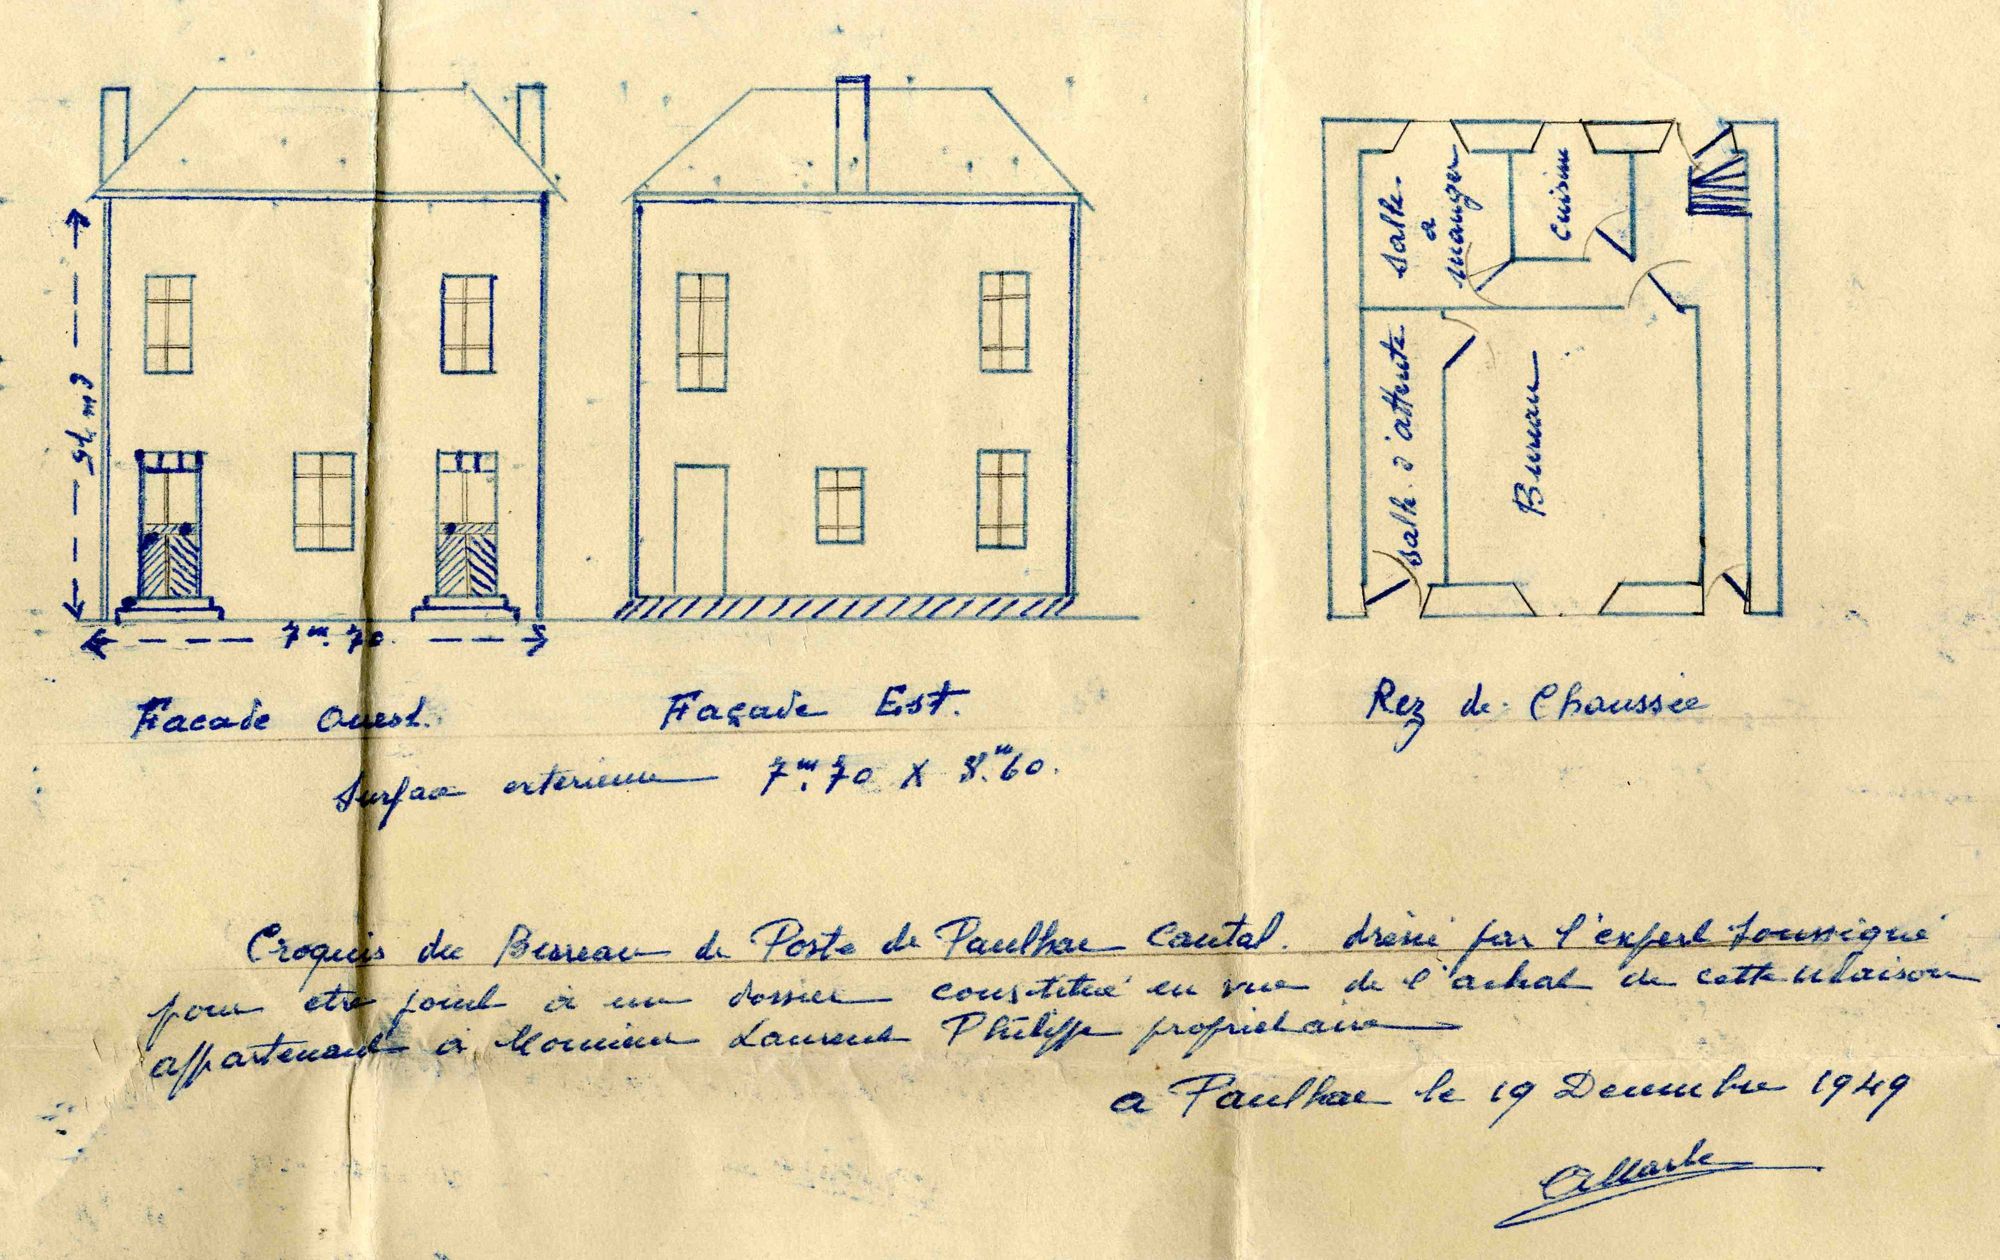 7m.70.
Facade Ouest.
Façade Est.
Surface exterieure 7m.70 X 8m.60.
Salle.
a
manger
Cuisine
Salle. d'attente
Bureau
Rez de. Chaussée
Croquis du Bureau de Poste de Paulhac Cantal. dressé par l'expert soussigné
pour etre joint à un dossier constitué en vue de l'achat de cette Maison
appartenant à Monsieur Laurent Philippe propriétaire
a Paulhac le 19 Decembre 1949